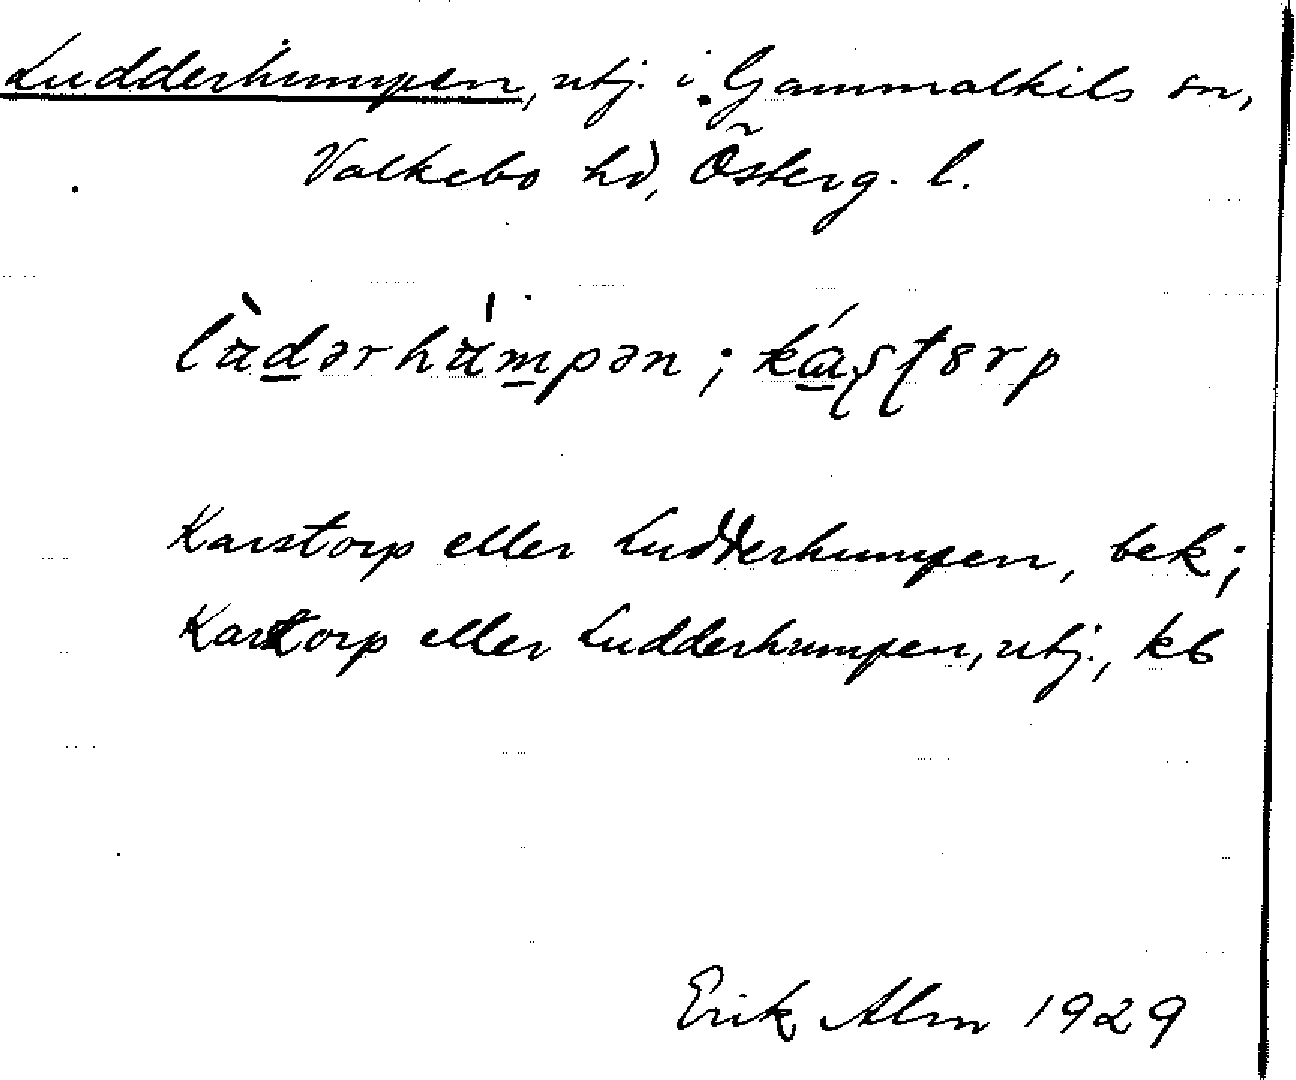 Ludderhumpen, utj. i Gammalkils sn,
Valkebo hd, Österg. l.
Karstorp eller Ludderhumpen, bek;
Karstorp eller Ludderhumpen, utj., kb
Erik Alm 1929